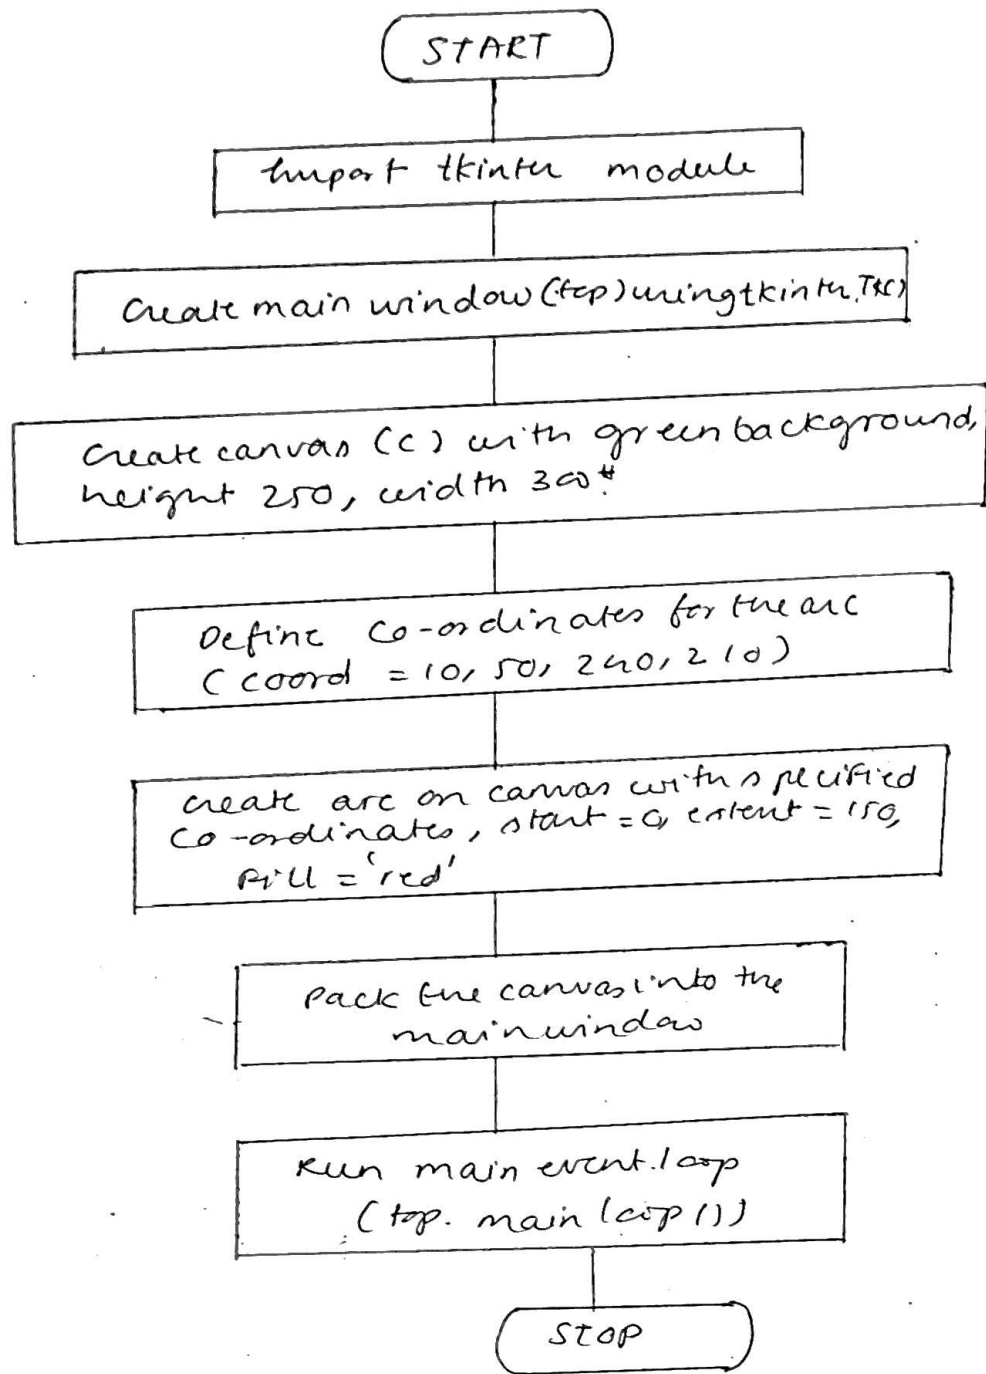 START
Import tkinter module
Create main window (top) using tkinter.Tk()
Create canvas (C) with green background,
height 250, width 300.
Define Co-ordinates for the arc
(coord = 10, 50, 240, 210)
Create arc on canvas with specified
Co-ordinates, start = 0, extent = 150,
Fill = 'red'
Pack the canvas into the
main window
Run main event loop
(top. main loop ())
STOP